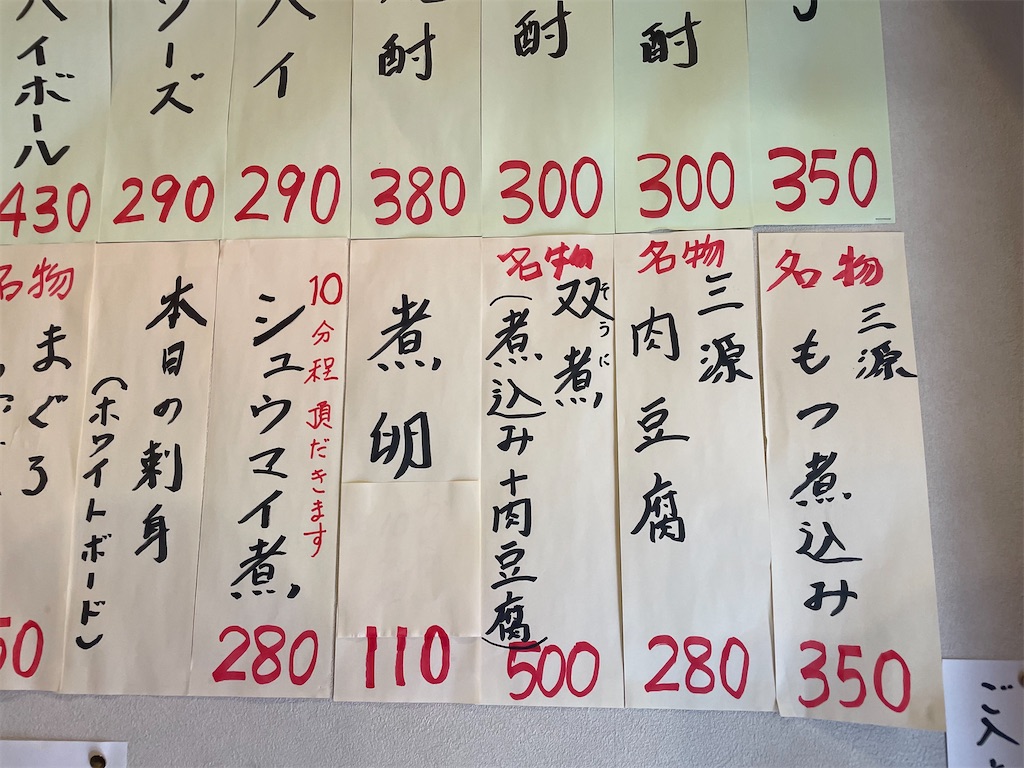 350
酎
300
酎
300
酎
380
ハイ
290
ーズ
290
ハイボール
430
名物
三源
もつ煮込み
350
名物
三源
肉豆腐
280
名物
双煮
そうに
(煮込み+肉豆腐)
500
煮卵
110
10分程頂だきます
シュウマイ煮
280
本日の刺身
(ホワイトボード)
名物
まぐろ
50
ご入